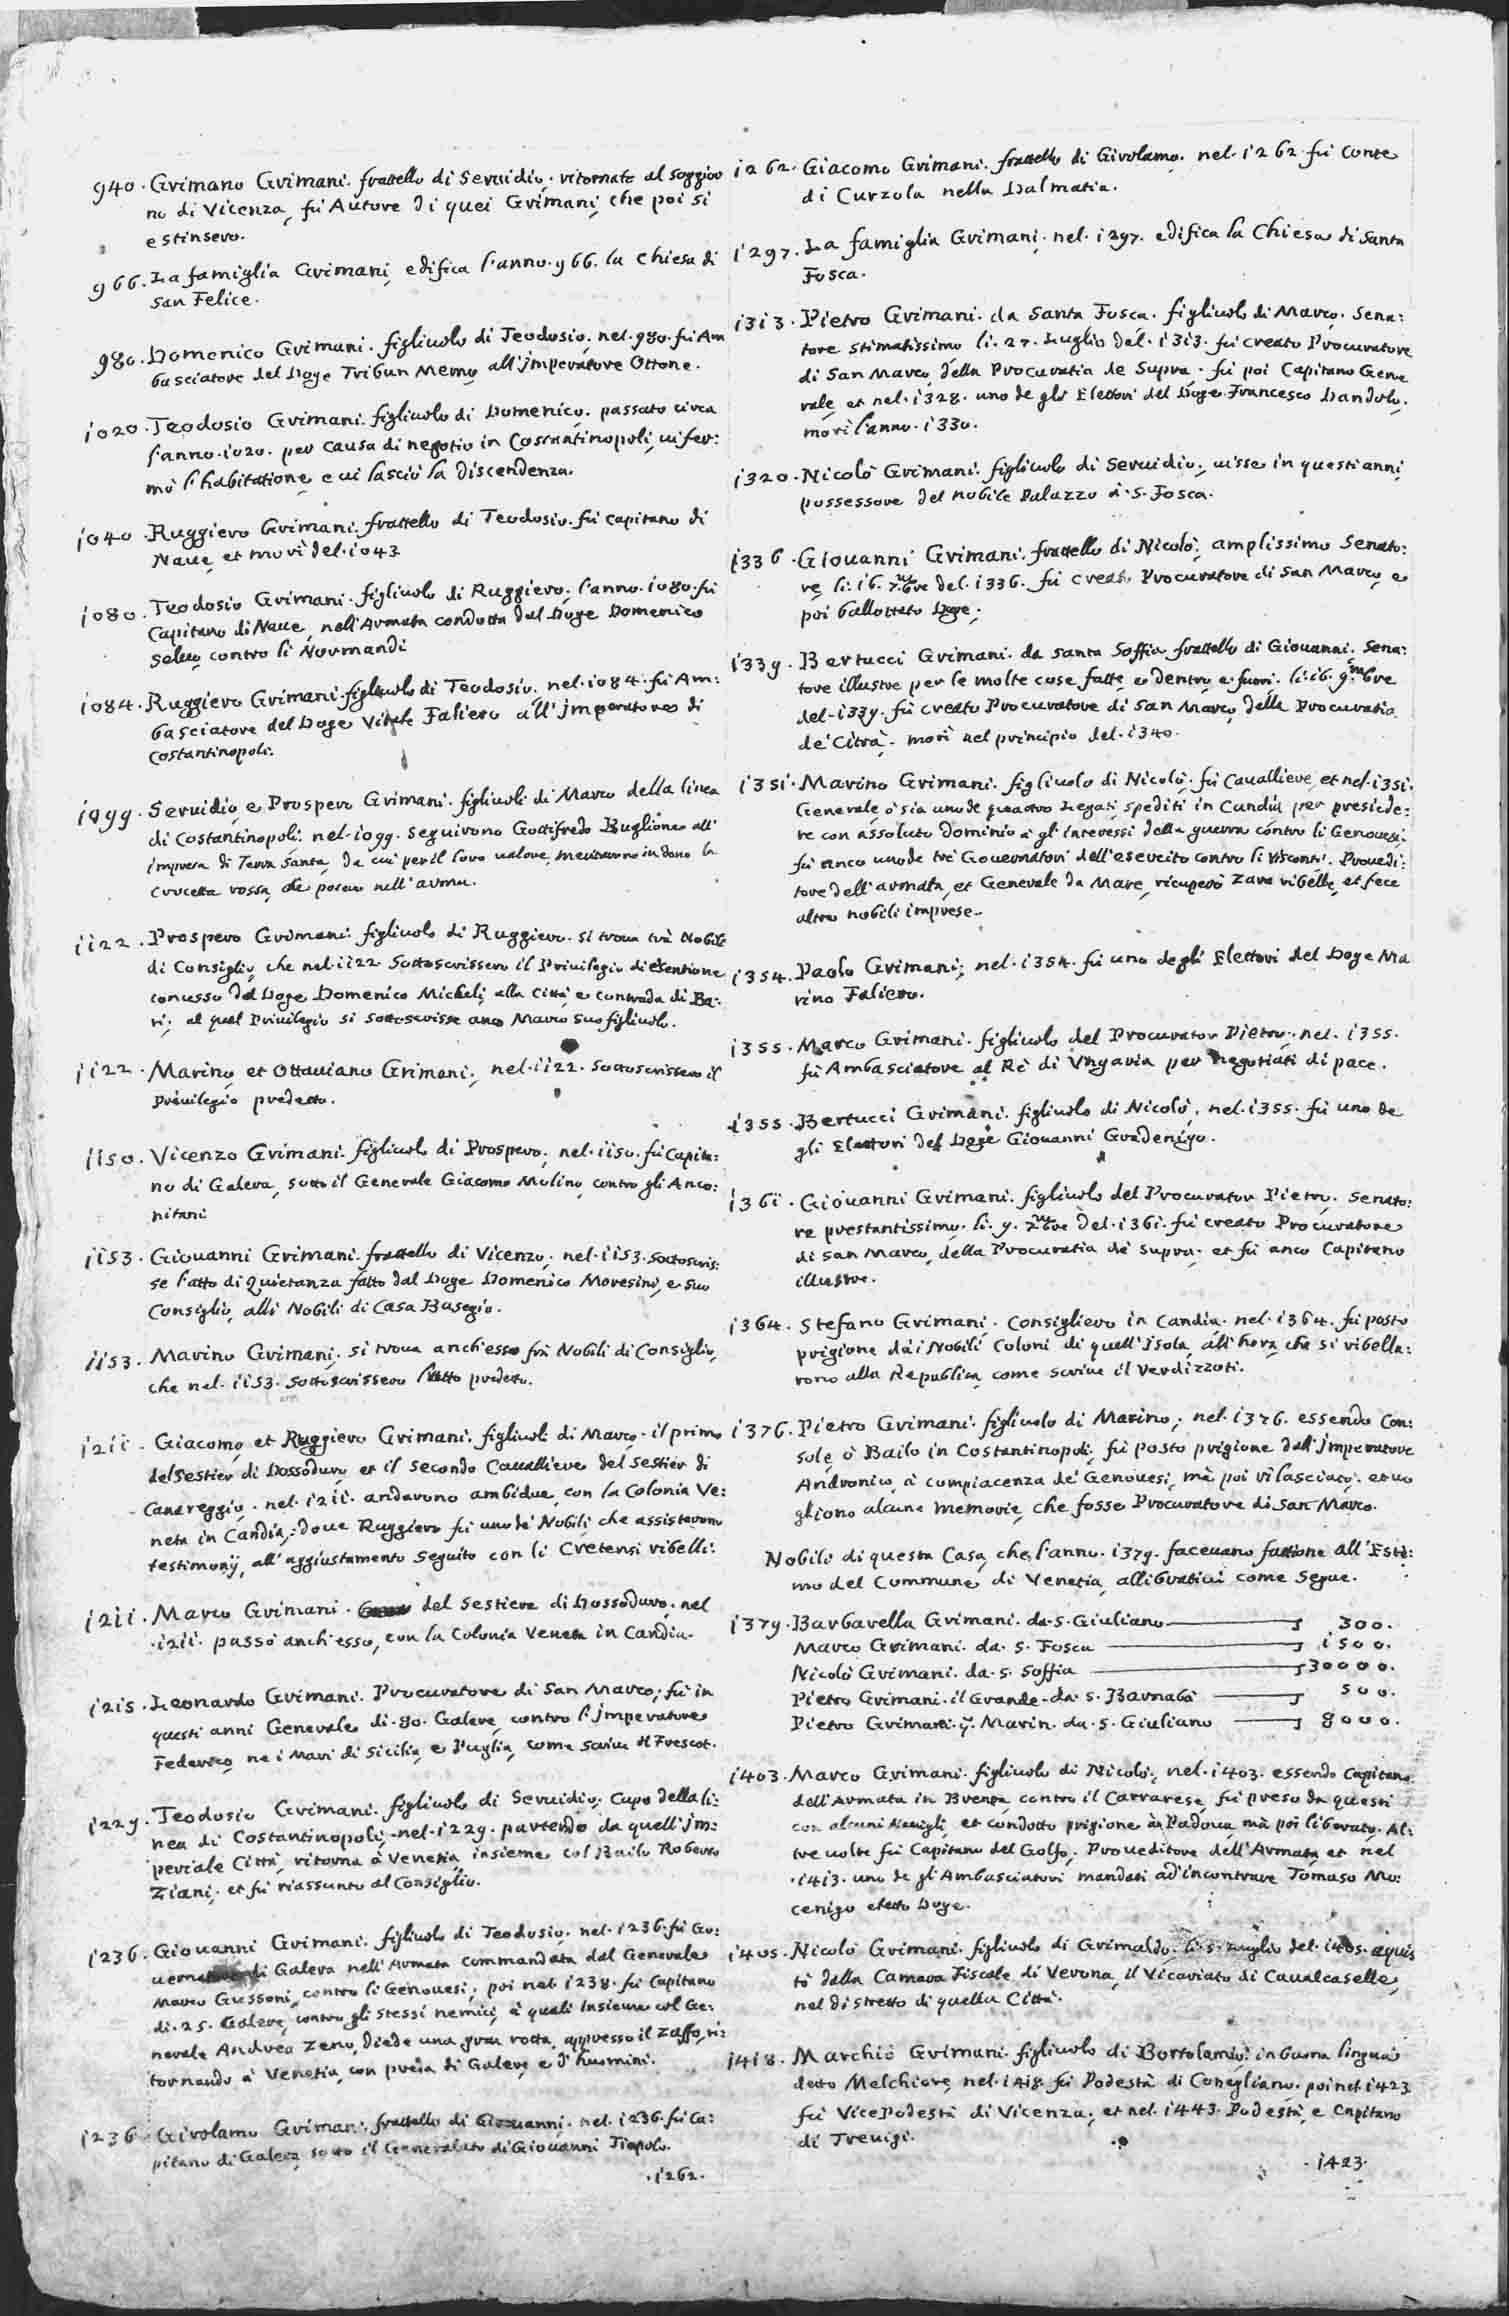 940. Grimano Grimani. frattello di Seruidio. ritornate al soggior
no di Vicenza, fù Autore di quei Grimani, che poi si
estinsero.
966. La famiglia Grimani, edifica l'anno. 966. la Chiesa di
San Felice.
980. Domenico Grimani. figliuolo di Teodosio. nel. 980. fù Am
basciatore del Doge Tribun Memo, all'jmperatore Ottone.
1020. Teodosio Grimani. figliuolo di Domenico. passato circa
l'anno. 1020. per causa di negotio in Costantinopoli, ui fer:
mò l'habitatione, e ui lasciò la discendenza.
1040. Ruggiero Grimani. frattello di Teodosio. fù capitano di
Naue, et morì del. 1043
1080. Teodosio Grimani. figliuolo di Ruggiero. l'anno. 1080. fù
Capitano di Naue, nell'Armata condotta dal Doge Domenico
Seluo, contro li Normandi
1084. Ruggiero Grimani. figliuolo di Teodosio. nel. 1084. fù Am:
basciatore del Doge Vitale Faliero all'jmperatore di
Costantinopoli.
1099. Seruidio, e Prospero Grimani. figliuoli di Marco della linea
di Costantinopoli. nel. 1099. seguirono Gottifredo Buglione all'
impresa di Terra Santa, da cui per il loro ualore, meritarono in dono la
Crocetta rossa, che portano nell'arma.
1122. Prospero Grimani. figliuolo di Ruggiero. si troua trà Nobili
di Consiglio, che nel. 1122 Sottoscrissero il Priuilegio di esentione
concesso dal Doge Domenico Micheli, alla Città e contrada di Ba:
ri; al qual Priuilegio si sottoscrisse anco Marco suo figliuolo.
1122. Marino, et Ottauiano Grimani, nel. 1122. sottoscrissero il
Priuilegio predetto.
1150. Vicenzo Grimani. figliuolo di Prospero. nel. 1150. fù Capita:
no di Galera, sotto il Generale Giacomo Molino, contro gli Anco:
nitani
1153. Giouanni Grimani. frattello di Vicenzo. nel. 1153. sottoscris:
se l'atto di Quietanza fatto dal Doge Domenico Moresini, e suo
Consiglio, alli Nobili di Casa Basegio.
1153. Marino Grimani, si troua anch'esso frà Nobili di Consiglio,
che nel. 1153. sottoscrissero l'atto predetto.
1211. Giacomo, et Ruggiero Grimani. figliuoli di Marco. il primo
del Sestier di Dossoduro, et il secondo Cauallieve del Sestier di
Canareggio. nel. 1211. andarono ambidue, con la Colonia Ve:
neta in Candia, doue Ruggiero fù uno de' Nobili, che assisterono
testimonij, all'aggiustamento seguito con li Cretensi ribelli.
1211. Marco Grimani. del Sestiere di Dossoduro. nel
.1211. passò anch'esso, con la Colonia Veneta in Candia.
1215. Leonardo Grimani. Procuratore di San Marco, fù in
questi anni Generale di. 80. Galere, contro l'jmperatore
Federico, ne i Mari di Sicilia, e Puglia, come scriue il Frescot.
1229. Teodosio Grimani. figliuolo di Seruidio. Capo della li:
nea di Costantinopoli, nel. 1229. partendo da quell'jm:
periale Città, ritorna à Venetia, insieme col Bailo Roberto
Ziani. et fù riassunto al Consiglio.
1236. Giouanni Grimani. figliuolo di Teodosio. nel. 1236. fù Go:
uernatore di Galera nell'Armata commandata dal Generale
Marco Gussoni, contro li Genouesi, poi nel 1238. fù Capitano
di. 25. Galere, contro gli stessi nemici, à quali insieme col Ge:
nerale Andrea Zeno, diede una gran rotta, appresso il Zaffo, ri:
tornando à Venetia, con presa di Galere, e d'huomini.
1236. Girolamo Grimani. frattello di Giouanni. nel. 1236. fù Ca:
pitano di Galera sotto il Generalato di Giouanni Tiepolo.
.1262.
1262. Giacomo Grimani. frattello di Girolamo. nel. 1262. fù Conte
di Curzola nella Dalmatia.
1297. La famiglia Grimani. nel. 1297. edifica la Chiesa di Santa
Fosca.
1313. Pietro Grimani. da Santa Fosca. figliuolo di Marco. Sena:
tore stimatissimo li. 27. Luglio del. 1313. fù creato Procuratore
di San Marco, della Procuratia de Supra. fù poi Capitano Gene
rale, et nel. 1328. uno de gli Elettori del Doge Francesco Dandolo,
morì l'anno. 1330.
1320. Nicolò Grimani. figliuolo di Seruidio, uisse in questi anni
possessore del nobile Palazzo à. S. Fosca.
1336. Giouanni Grimani. frattello di Nicolò, amplissimo Senato:
re, li. 16. 7mbre del. 1336. fù creato Procuratore di San Marco, e
poi ballottato Doge.
1339. Bertucci Grimani. da Santa Soffia frattello di Giouanni. Sena:
tore illustre per le molte cose fatte, e dentro, e fuori. li. 16. 9mbre
del. 1339. fù creato Procuratore di San Marco, della Procuratia
de' Citrà. morì nel principio del. 1340.
1351. Marino Grimani. figliuolo di Nicolò. fù Cauallieve, et nel. 1351.
Generale, ò sia uno de quattro Legati, spediti in Candia per presiede:
re con assoluto dominio à gl'interessi della guerra contro li Genouesi.
fù anco uno de trè Gouernatori dell'esercito contro li Visconti. Proueди:
tore dell'armata, et Generale da Mare, ricuperò Zara ribelle, et fece
altre nobili imprese.
1354. Paolo Grimani, nel. 1354. fù uno degli Elettori del Doge Ma
rino Faliero.
1355. Marco Grimani. figliuolo del Procurator Pietro. nel. 1355.
fù Ambasciatore al Rè di Vngaria per negotiati di pace.
1355. Bertucci Grimani. figliuolo di Nicolò. nel. 1355. fù uno de
gli Elettori del Doge Giouanni Gradenigo.
1361. Giouanni Grimani. figliuolo del Procurator Pietro. Senato:
re prestantissimo. li. 9. Xmbre del. 1361. fù creato Procuratore
di San Marco, della Procuratia de supra. et fù anco Capitano
illustre.
1364. Stefano Grimani. Consigliero in Candia. nel. 1364. fù posto
prigione dai Nobili Coloni di quell'Isola, all'hora, che si ribella:
rono alla Republica, come scriue il Verdizzoti.
1376. Pietro Grimani. figliuolo di Marino, nel. 1376. essendo Con:
sole, ò Bailo in Costantinopoli, fù posto prigione dall'jmperatore
Andronico, à compiacenza de' Genouesi, mà poi rilasciato. et uo
gliono alcune memorie, che fosse Procuratore di San Marco.
Nobili di questa Casa, che l'anno. 1379. faceuano fattione all'Esti:
mo del Commune di Venetia, allibratiui come segue.
1379. Barbarella Grimani. da. S. Giuliano 300.
Marco Grimani. da. S. Fosca 1500.
Nicolò Grimani. da. S. Soffia 30000.
Pietro Grimani. il Grande. da. S. Barnabà 500.
Pietro Grimani. q. Marin. da. S. Giuliano 8000.
1403. Marco Grimani. figliuolo di Nicolò, nel. 1403. essendo Capitano
dell'Armata in Brenta, contro il Carrarese, fù preso da questi
con alcuni Nauigli, et condotto prigione in Padoua, mà poi liberato. Al:
tre uolte fù Capitano del Golfo. Proueditore dell'Armata, et nel
.1413. uno de gl'Ambasciatori mandati ad'incontrare Tomaso Mo:
cenigo eletto Doge.
1405. Nicolò Grimani. figliuolo di Grimaldo. li. 5. Luglio del. 1405. aquis
tò dalla Camara Fiscale di Verona, il Vicariato di Caualcaselle,
nel distretto di quella Città.
1418. Marchiò Grimani. figliuolo di Bortolamio. in buona lingua
detto Melchiore, nel. 1418. fù Podestà di Conegliano. poi nel. 1423
fù VicePodestà di Vicenza, et nel. 1443. Podestà, e Capitano
di Treuigi.
.1423.